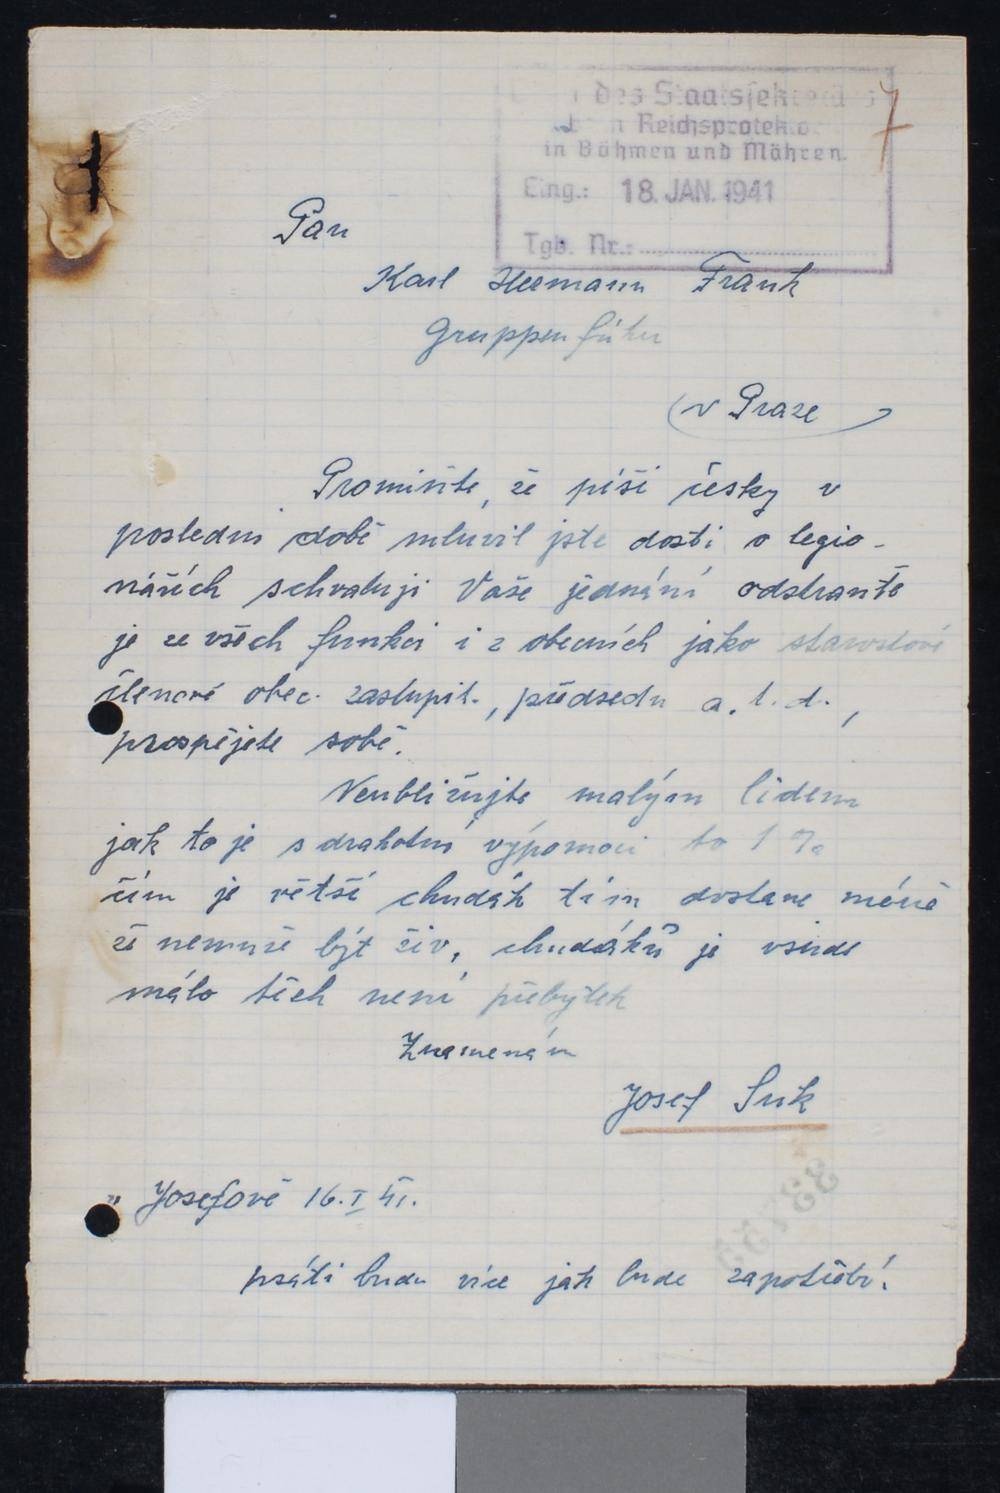 des Staatssekretärs
Reichsprotektor
in Böhmen und Mähren.
Eing.: 18. JAN. 1941
Tgb. Nr.:
7
Pan
Karl Hermann Frank
Gruppenführer
v Praze
Prominťe, že píši česky v
poslední době mluvil jste dosti o legio-
nářích schvaluji Vaše jednání odstraňte
je ze všech funkcí i z obecních jako starostové
členové obec. zastupit., předsedu a. t. d.,
prospějete sobě.
Neubližujte malým lidem
jak to je s drahotní výpomocí to 1 %
čím je větší chudák tím dostane méně
že nemůže být živ, chudáků je všude
málo těch není přebytek
Znamenám
Josef Suk
v Josefově 16. I 41.
psáti budu více jak bude zapotřebí.